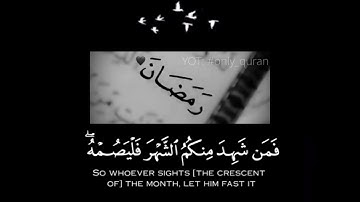 YOT: #only_quran
رَمَضَانَ
فَمَن شَهِدَ مِنكُمُ ٱلشَّهْرَ فَلْيَصُمْهُ ۖ
So whoever sights [the crescent
of] the month, let him fast it